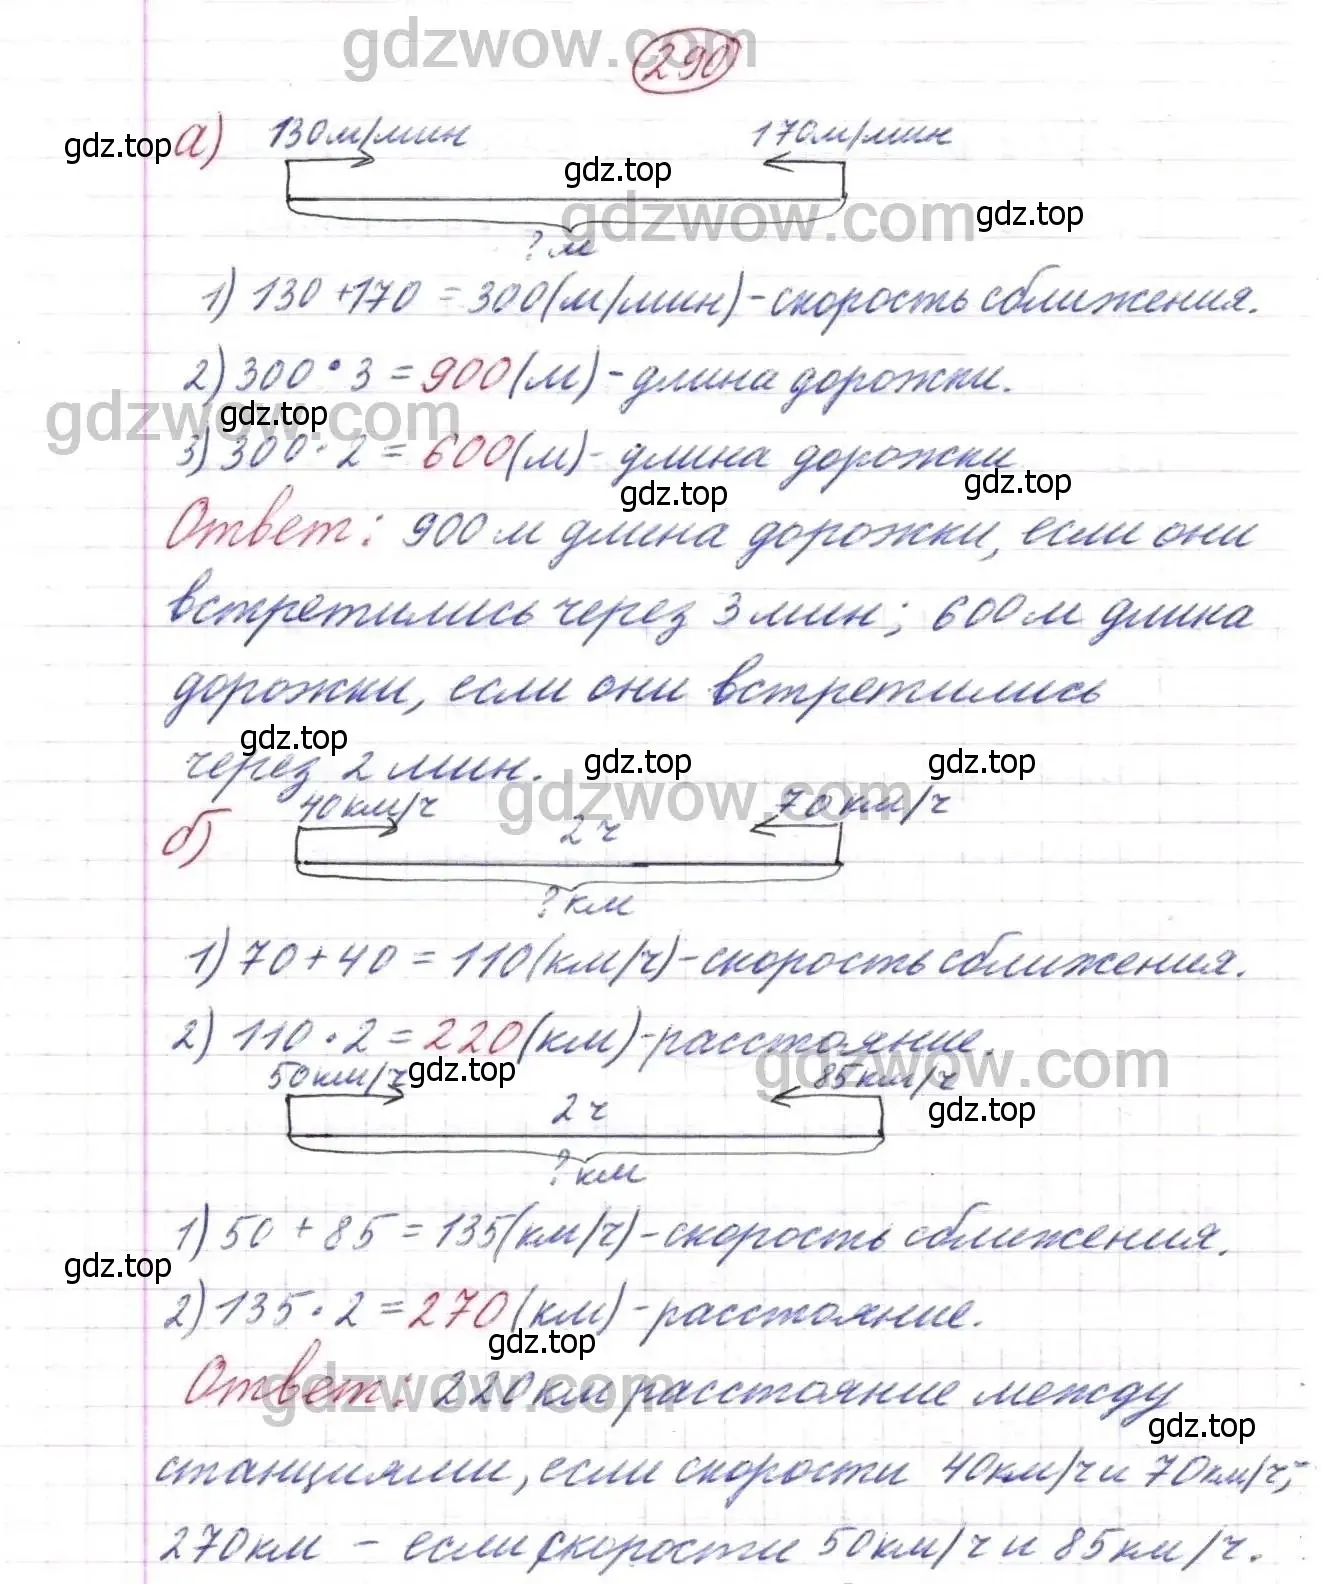 gdzwow.com
290
gdz.top а) 130м/мин 170м/мин
gdz.top
gdzwow.com gdz.top
? м
1) 130 + 170 = 300(м/мин) - скорость сближения.
2) 300 · 3 = 900(м) - длина дорожки.
gdzwow.com gdz.top
3) 300 · 2 = 600(м) - длина дорожки
gdz.top gdz.top
Ответ: 900 м длина дорожки, если они
встретились через 3 мин; 600 м длина
дорожки, если они встретились
gdz.top
через 2 мин. gdz.top gdz.top
gdzwow.com
б) 40км/ч 2 ч 70км/ч
? км
1) 70 + 40 = 110(км/ч) - скорость сближения.
2) 110 · 2 = 220(км) - расстояние.
gdz.top gdzwow.com
50км/ч 2 ч 85км/ч
gdz.top
? км
1) 50 + 85 = 135(км/ч) - скорость сближения.
gdz.top
2) 135 · 2 = 270(км) - расстояние.
gdz.top
gdzwow.com
Ответ: 220 км расстояние между
gdz.top
станциями, если скорости 40км/ч и 70км/ч;
270км - если скорости 50км/ч и 85км/ч.